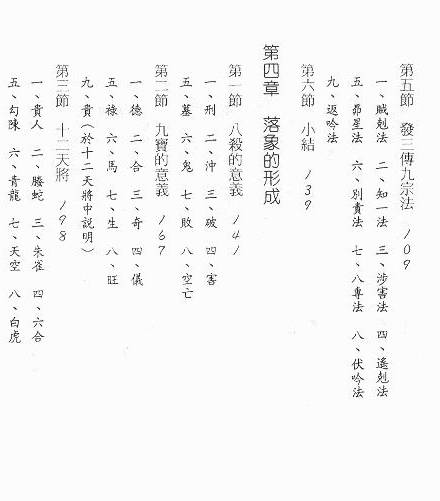 第五節　發三傳九宗法　109
一、賊剋法　二、知一法　三、涉害法　四、遙剋法
五、昴星法　六、別責法　七、八專法　八、伏吟法
九、返吟法
第六節　小結　139
第四章　落象的形成
第一節　八殺的意義　141
一、刑　二、沖　三、破　四、害
五、墓　六、鬼　七、敗　八、空亡
第二節　九寶的意義　167
一、德　二、合　三、奇　四、儀
五、祿　六、馬　七、生　八、旺
九、貴（於十二天將中説明）
第三節　十二天將　198
一、貴人　二、螣蛇　三、朱雀　四、六合
五、勾陳　六、青龍　七、天空　八、白虎